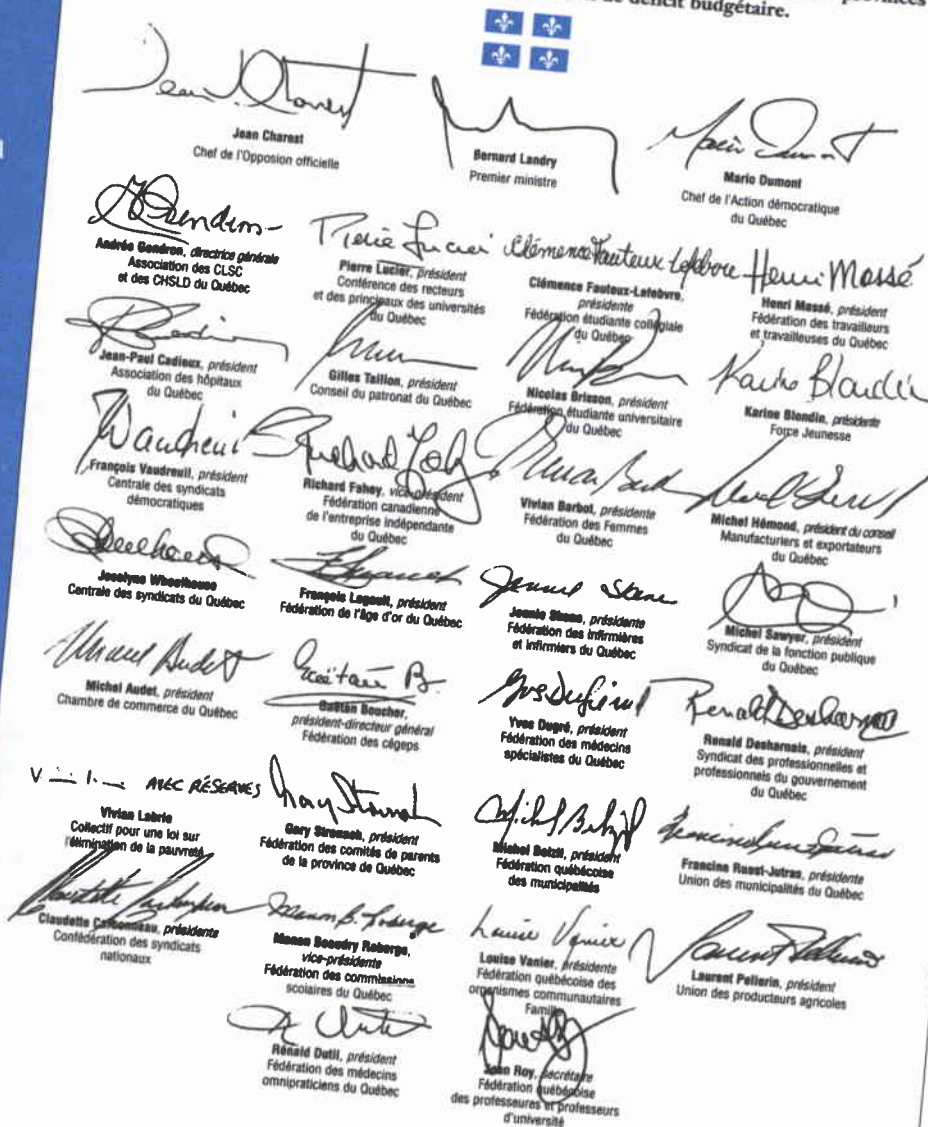 provinces
de déficit budgétaire.
Jean Charest
Chef de l'Opposion officielle
Bernard Landry
Premier ministre
Mario Dumont
Chef de l'Action démocratique
du Québec
Andrée Gendron, directrice générale
Association des CLSC
et des CHSLD du Québec
Pierre Lucier, président
Conférence des recteurs
et des principaux des universités
du Québec
Clémence Fauteux-Lefebvre
Clémence Fauteux-Lefebvre,
présidente
Fédération étudiante collégiale
du Québec
Henri Massé
Henri Massé, président
Fédération des travailleurs
et travailleuses du Québec
Jean-Paul Cadieux, président
Association des hôpitaux
du Québec
Gilles Taillon, président
Conseil du patronat du Québec
Nicolas Brisson, président
Fédération étudiante universitaire
du Québec
Karine Blondin
Karine Blondin, présidente
Force Jeunesse
François Vaudreuil, président
Centrale des syndicats
démocratiques
Richard Fahey, vice-président
Fédération canadienne
de l'entreprise indépendante
du Québec
Vivian Barbot, présidente
Fédération des Femmes
du Québec
Michel Hémond, président du conseil
Manufacturiers et exportateurs
du Québec
Jocelyne Wheelhouse
Centrale des syndicats du Québec
François Legault, président
Fédération de l'âge d'or du Québec
Jennie Skene
Jennie Skene, présidente
Fédération des infirmières
et infirmiers du Québec
Michel Sawyer, président
Syndicat de la fonction publique
du Québec
Michel Audet
Michel Audet, président
Chambre de commerce du Québec
Gaëtan B.
Gaëtan Boucher,
président-directeur général
Fédération des cégeps
Yves Dugré, président
Fédération des médecins
spécialistes du Québec
Renald Desharnais
Renald Desharnais, président
Syndicat des professionnelles et
professionnels du gouvernement
du Québec
AVEC RÉSERVES
Vivian Labrie
Collectif pour une loi sur
l'élimination de la pauvreté
Gary Stronach, président
Fédération des comités de parents
de la province de Québec
Michel Belzil
Michel Belzil, président
Fédération québécoise
des municipalités
Francine Ruest-Jutras, présidente
Union des municipalités du Québec
Claudette Carbonneau, présidente
Confédération des syndicats
nationaux
Manon B. Roberge
Manon Beaudry Roberge,
vice-présidente
Fédération des commissions
scolaires du Québec
Louise Vanier
Louise Vanier, présidente
Fédération québécoise des
organismes communautaires
Famille
Laurent Pellerin
Laurent Pellerin, président
Union des producteurs agricoles
Rénald Dutil, président
Fédération des médecins
omnipraticiens du Québec
Roy, secrétaire
Fédération québécoise
des professeures et professeurs
d'université